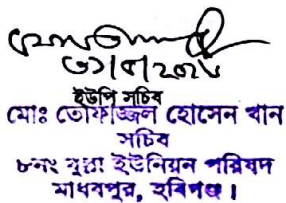 ৩১/০৫/২০২৮
ইউপি সচিব
মোঃ তোফাজ্জল হোসেন খান
সচিব
৮নং বুল্লা ইউনিয়ন পরিষদ
মাধবপুর, হবিগঞ্জ।